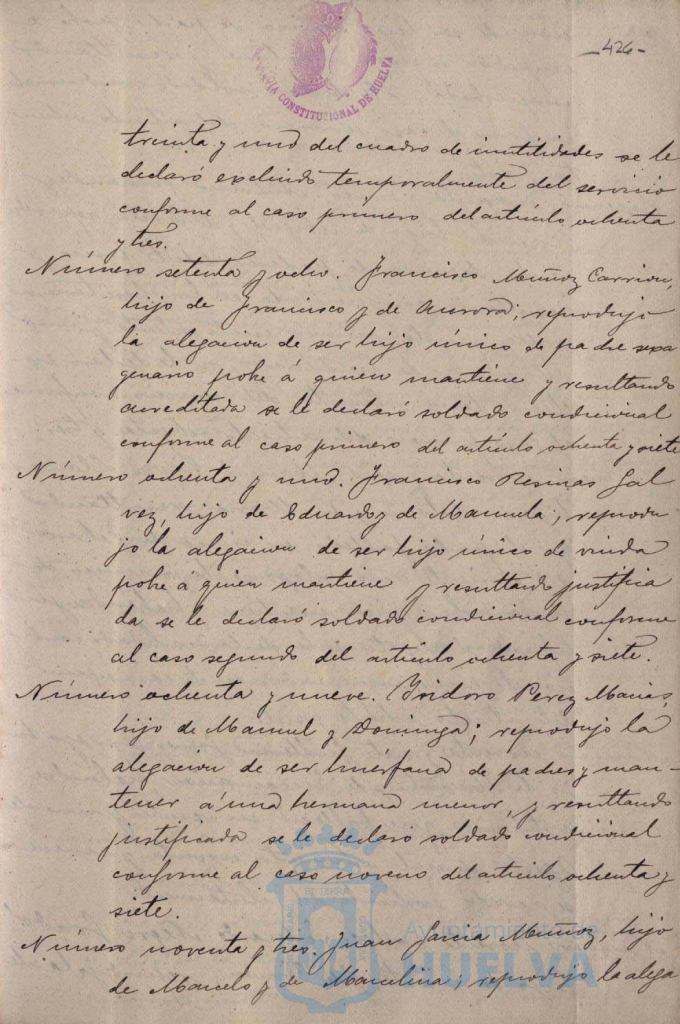 ALCALDIA CONSTITUCIONAL DE HUELVA
-426-
treinta y uno del cuadro de inutilidades se le
declaró excluido temporalmente del servicio
conforme al caso primero del artículo ochenta
y tres.
Número setenta y ocho. Francisco Muñoz Carrion,
hijo de Francisco y de Aurora; reprodujo
la alegacion de ser hijo único de padre sexa
genario pobre á quien mantiene y resultando
acreditada se le declaró soldado condicional
conforme al caso primero del artículo ochenta y siete
Número ochenta y uno. Francisco Resinas Gal
vez, hijo de Eduardo y de Manuela; reprodu
jo la alegacion de ser hijo único de viuda
pobre á quien mantiene y resultando justifica
da se le declaró soldado condicional conforme
al caso segundo del artículo ochenta y siete.
Número ochenta y nueve. Ysidoro Perez Macias,
hijo de Manuel y Dominga; reprodujo la
alegacion de ser huérfano de padres y man-
tener á una hermana menor, y resultando
justificada se le declaró soldado condicional
conforme al caso noveno del artículo ochenta y
siete.
Número noventa y tres. Juan Garcia Muñoz, hijo
de Marcelo y de Marcelina; reprodujo la alega
Ayuntamiento de
HUELVA